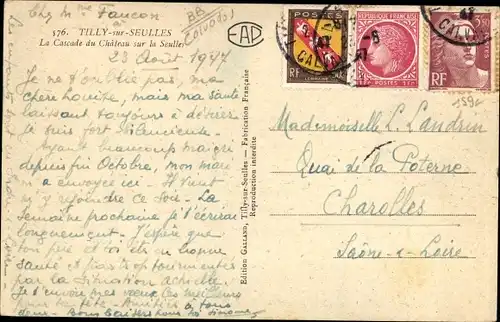 Chez Mme Faucon
576. TILLY-sur-SEULLES
La Cascade du Château sur la Seulles
EAP
23 Août 1947
Je ne t'oublie pas, ma
chère Louise, mais ma santé
laissant toujours à désirer
je suis fort silencieuse
Ayant beaucoup maigri
depuis fin Octobre, mon mari
m'a envoyée ici - Il vient
m'y rejoindre ce soir - La
semaine prochaine je t'écrirai
longuement. J'espère que
ton père et toi êtes en bonne
santé et pas trop tourmentés
par la situation actuelle.
Je t'envoie mes vœux les meilleurs
pour ta fête
Édition GALLAND, Tilly-sur-Seulles - Fabrication Française
Reproduction interdite
POSTES
LORRAINE
RF
RF POSTES 1F
RF
Mademoiselle L. Landrin
Quai de la Poterne
Charolles
Saône-&-Loire